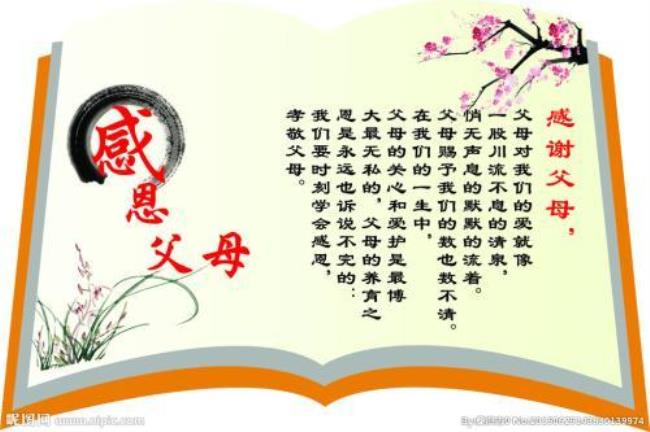 感恩父母
感谢父母，
父母对我们的爱就像
一股川流不息的清泉，
悄无声息的默默的流着。
父母赐予我们的数也数不清。
在我们的一生中，
父母的关心和爱护是最博
大最无私的，父母的养育之
恩是永远也诉说不完的：
我们要时刻学会感恩，
孝敬父母。
昵图网 www.nipic.com